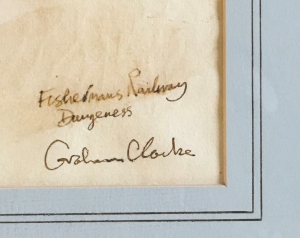 Fishermans Railway
Dungeness
Graham Clarke